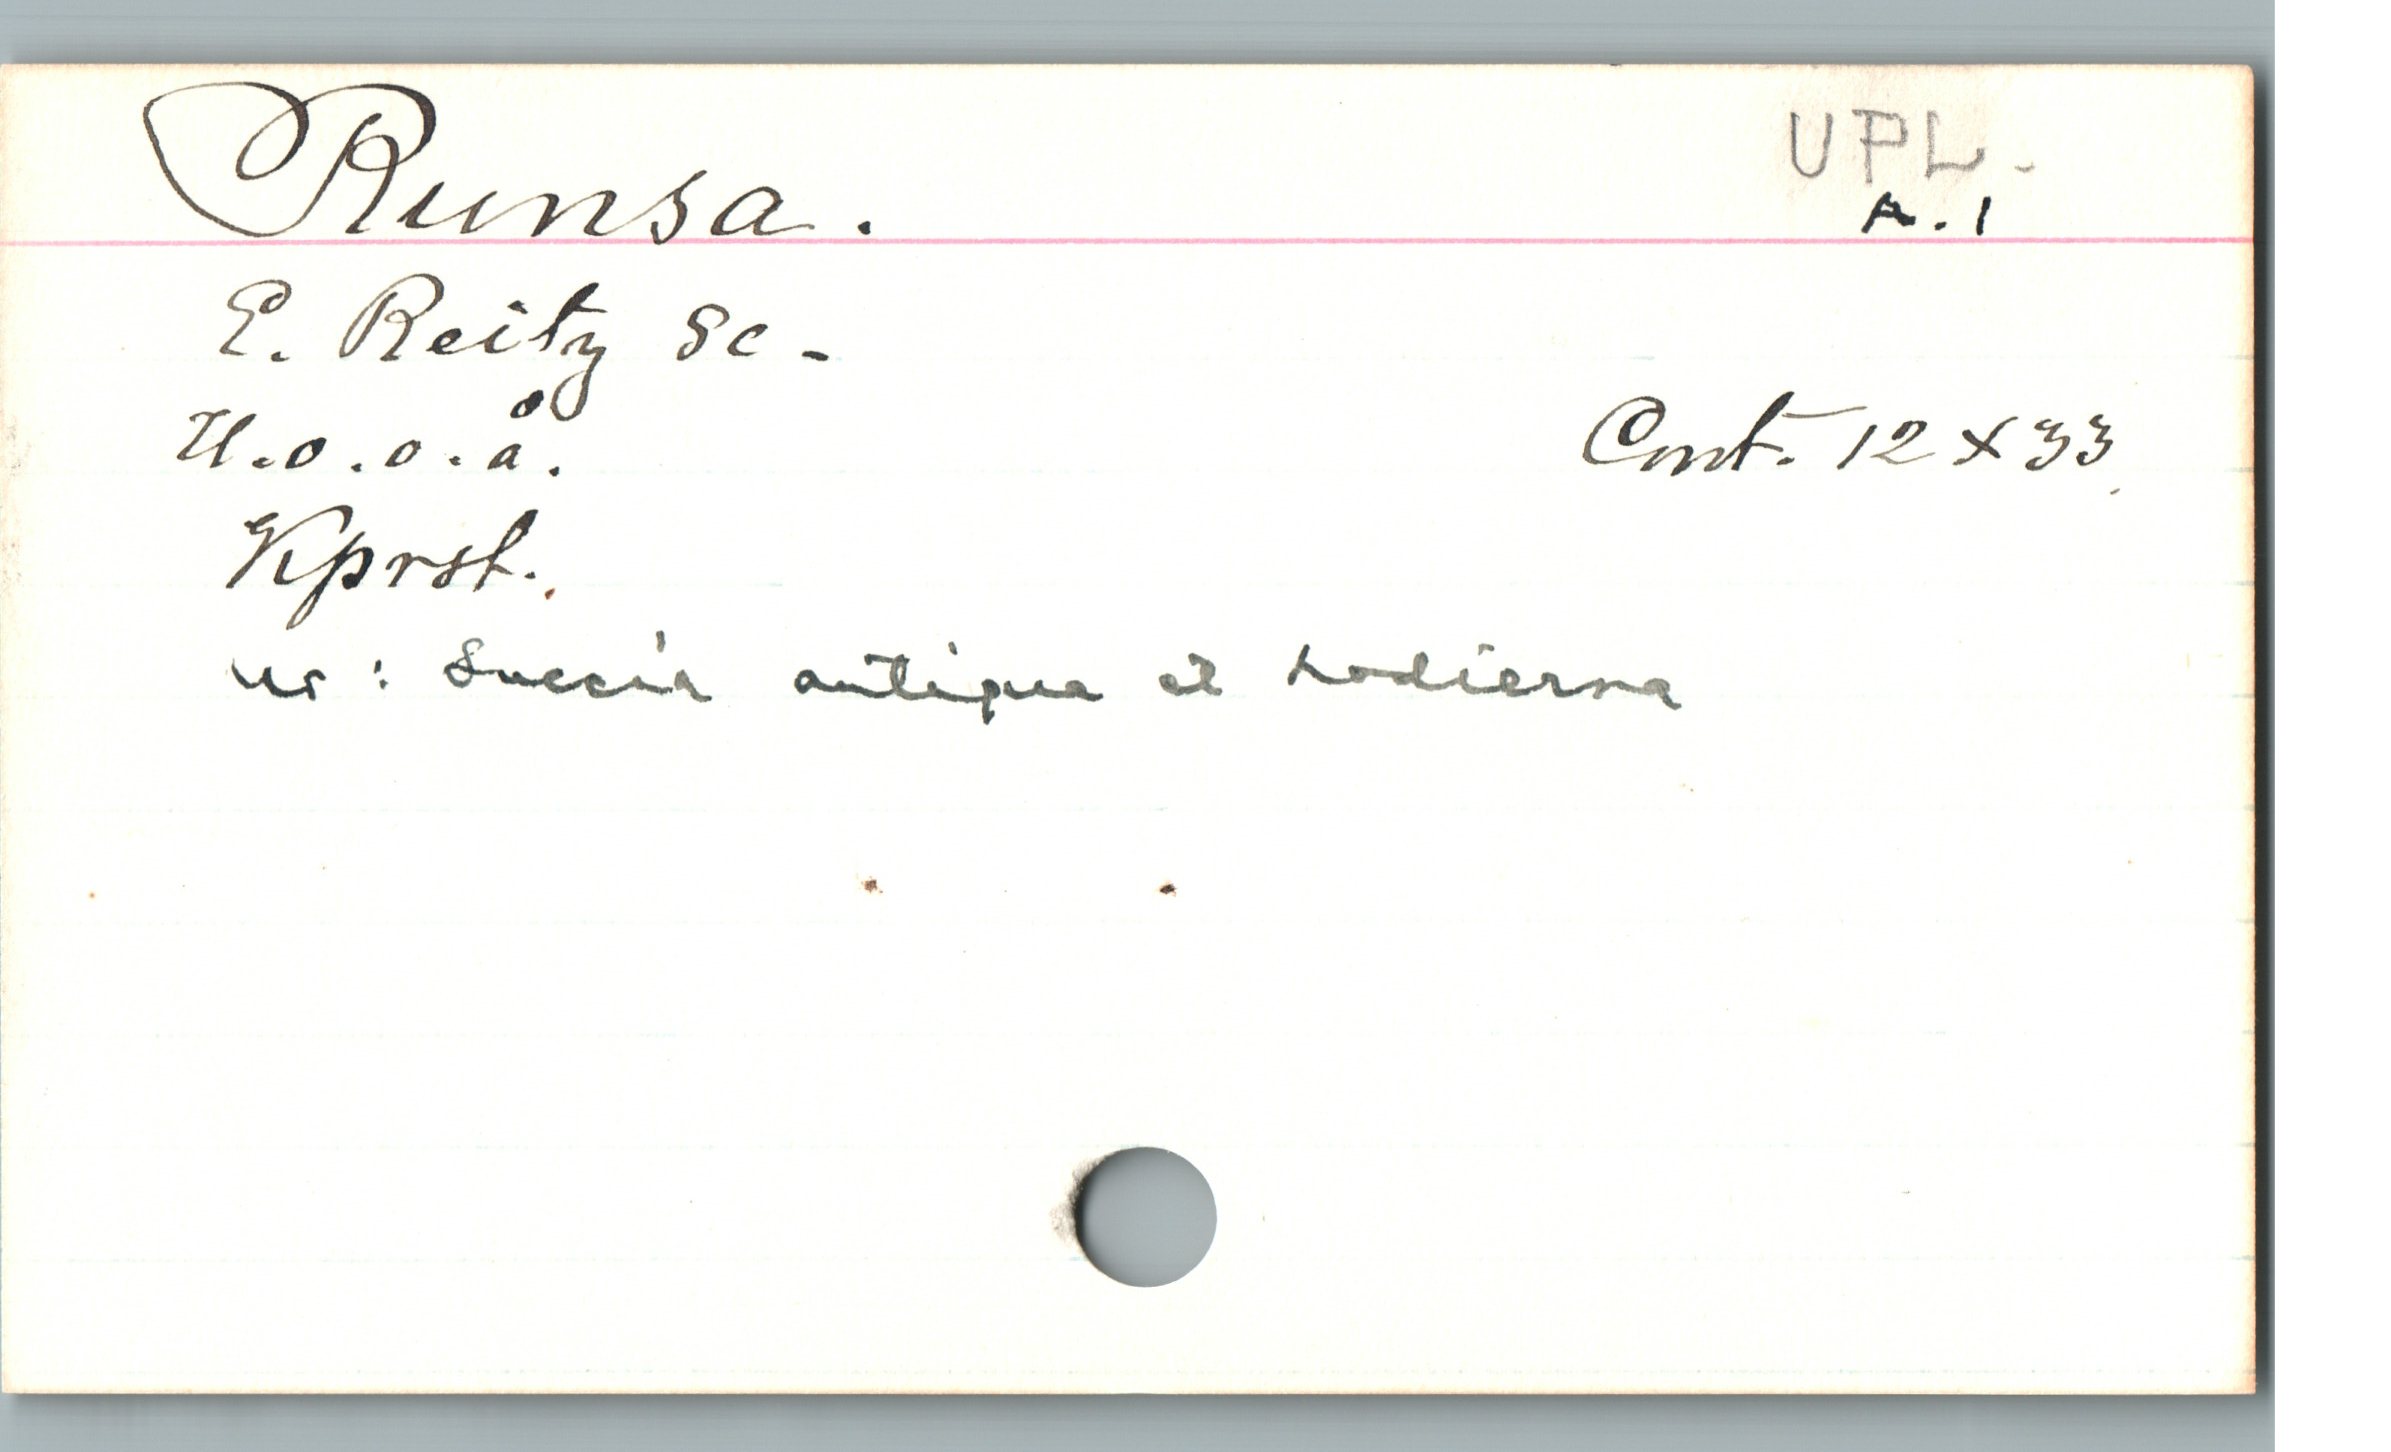 Runsa.
UPL.
A.1
E. Reitz sc.
U.o.o.å.
Cont. 12 x 33
Kprst.
ur: Suecia antiqua et hodierna